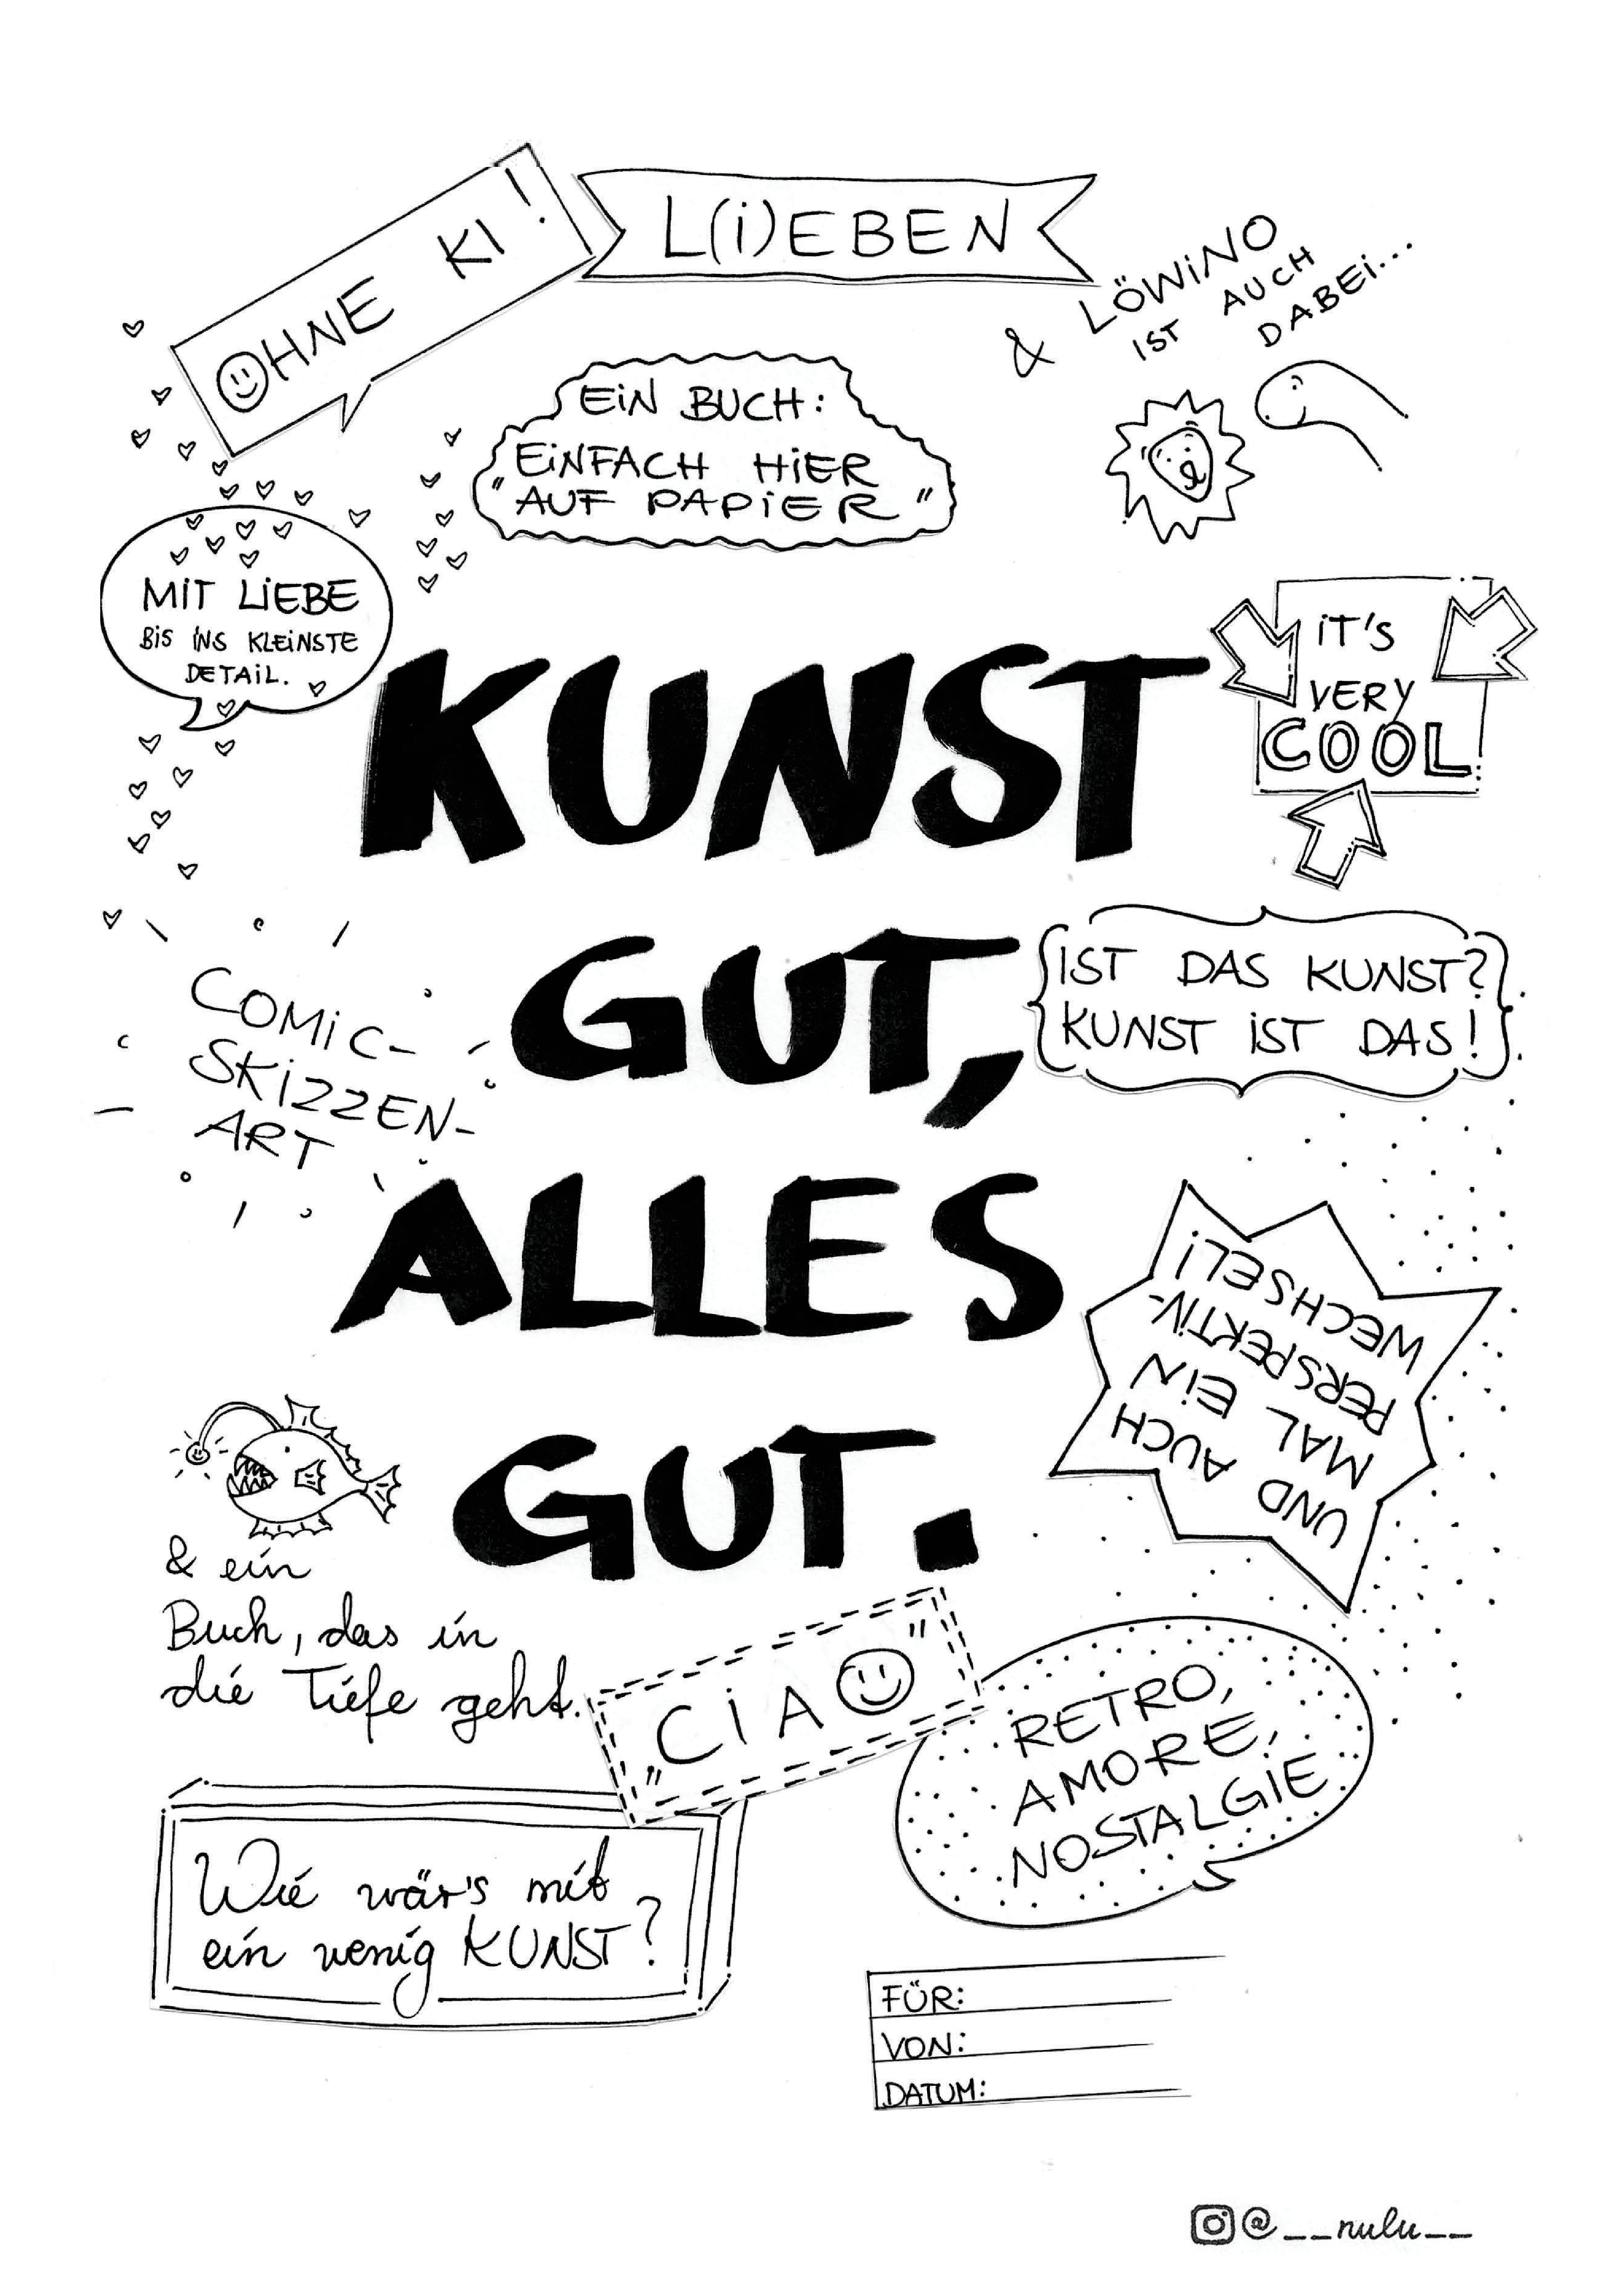 OHNE KI!
L(i)EBEN
& LÖWiNO
iST AUCH
DABEi...
EiN BUCH:
EiNFACH HiER
"AUF PAPiER"
MiT LiEBE
BiS iNS KLEiNSTE
DETAiL.
iT'S
VERY
COOL
KUNST
GUT,
ALLES
GUT.
IST DAS KUNST?
KUNST iST DAS!
COMiC-
SKiZZEN-
ART
UND AUCH
MAL EiN
PERSPEKTiV-
WECHSEL!
& ein
Buch, das in
die Tiefe geht.
"CiAO"
RETRO,
AMORE,
NOSTALGIE
Wie wär's mit
ein wenig KUNST?
FÜR:
VON:
DATUM:
@__nulu__